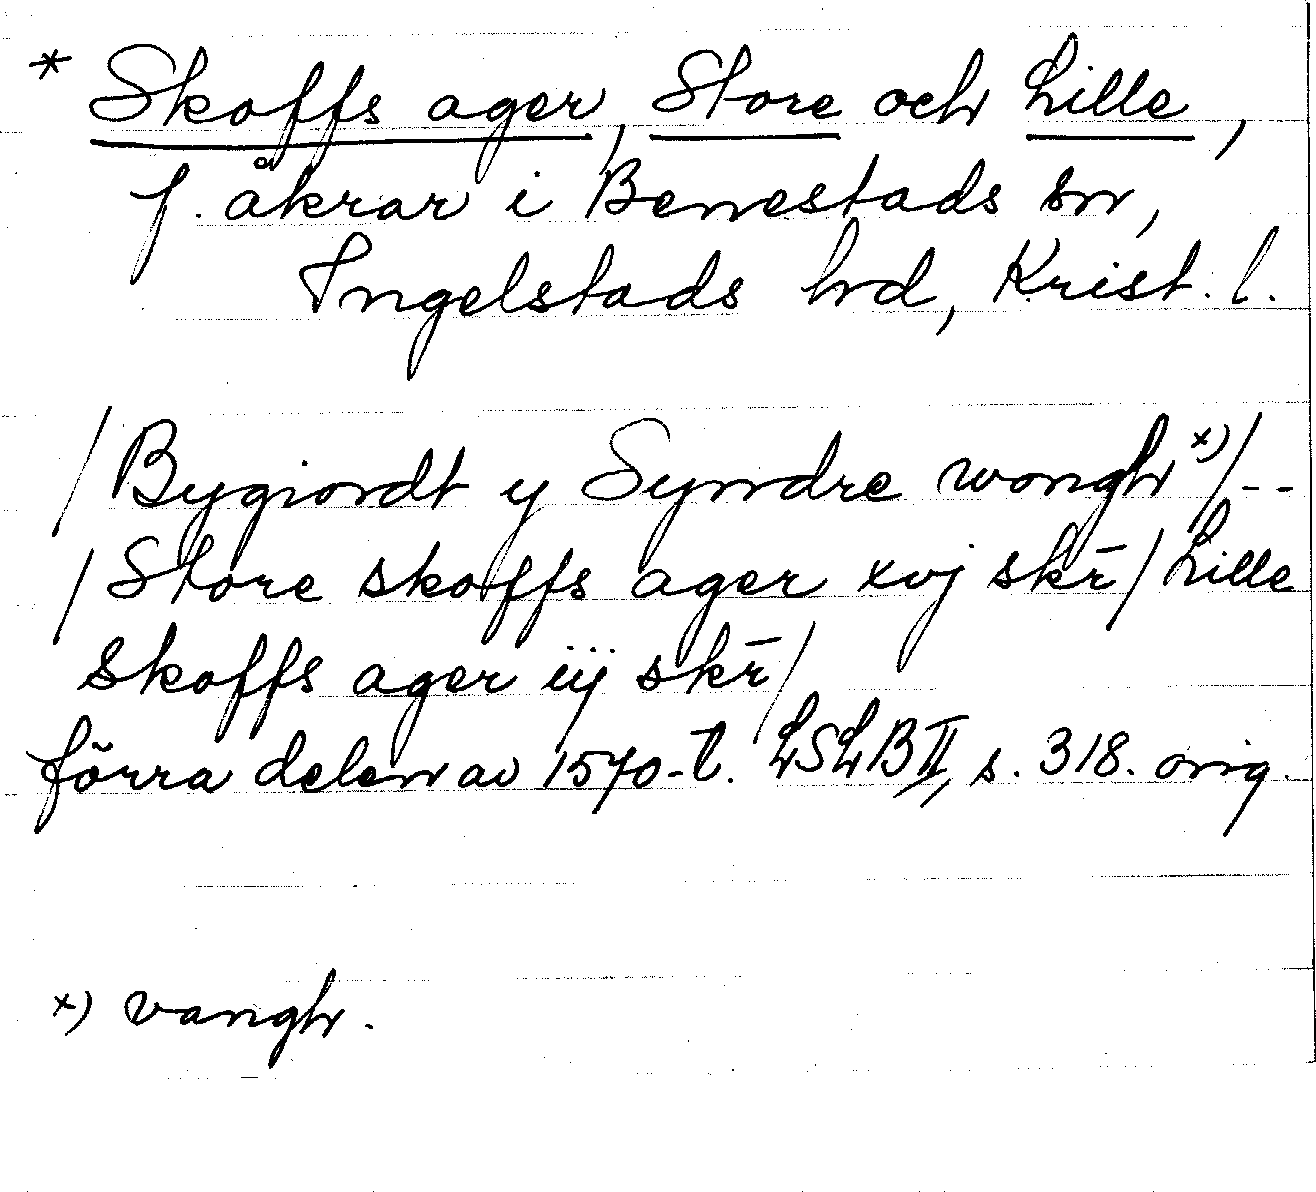 * Skoffs ager, Store och Lille,
f. åkrar i Benestads sn,
Ingelstads hd, Krist. l.
/Bygiordt y Syndre wongh x)/--
/Store skoffs ager xvj skr̄/Lille
skoffs ager iij skr̄/
förra delen av 1570-t. LSLB II, s. 318. orig.
x) vangh.